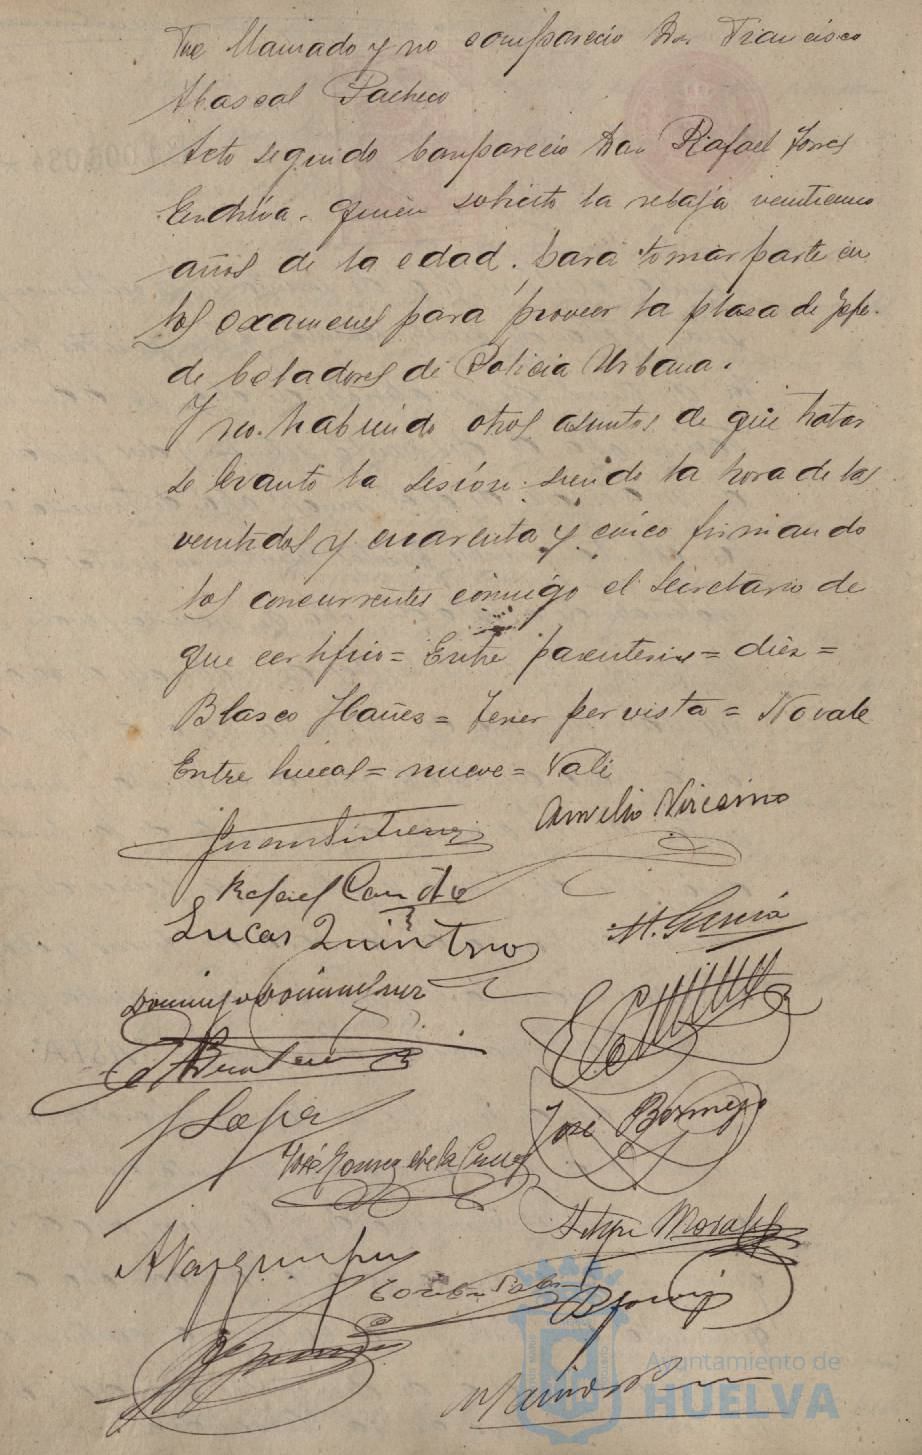 Fue llamado y no comparecio Don Francisco
Abascal Pacheco
Acto seguido comparecio Don Rafael Torres
Endriva. quien solicito la rebaja veinticinco
años de la edad. para tomar parte en
los examenes para proveer la plasa de Jefe.
de Celadores de Policia Urbana.
Y no. habiendo otros asuntos de que tratar
se levanto la sesión siendo la hora de las
veintidos y cuarenta y cinco firmando
los concurrentes conmigo el Secretario de
que certifico = Entre parentesis = diez =
Blasco Ibañez = Tener por vista = No vale
Entre lineas = nueve = Vale
Aurelio Vizcaino
Rafael
Lucas Quintero
M. Garcia
Domingo Dominguez
J Lopez
José Bermejo
José Gomez de la Cruz
Felipe Morales
A Vazquez
Ayuntamiento de
HUELVA